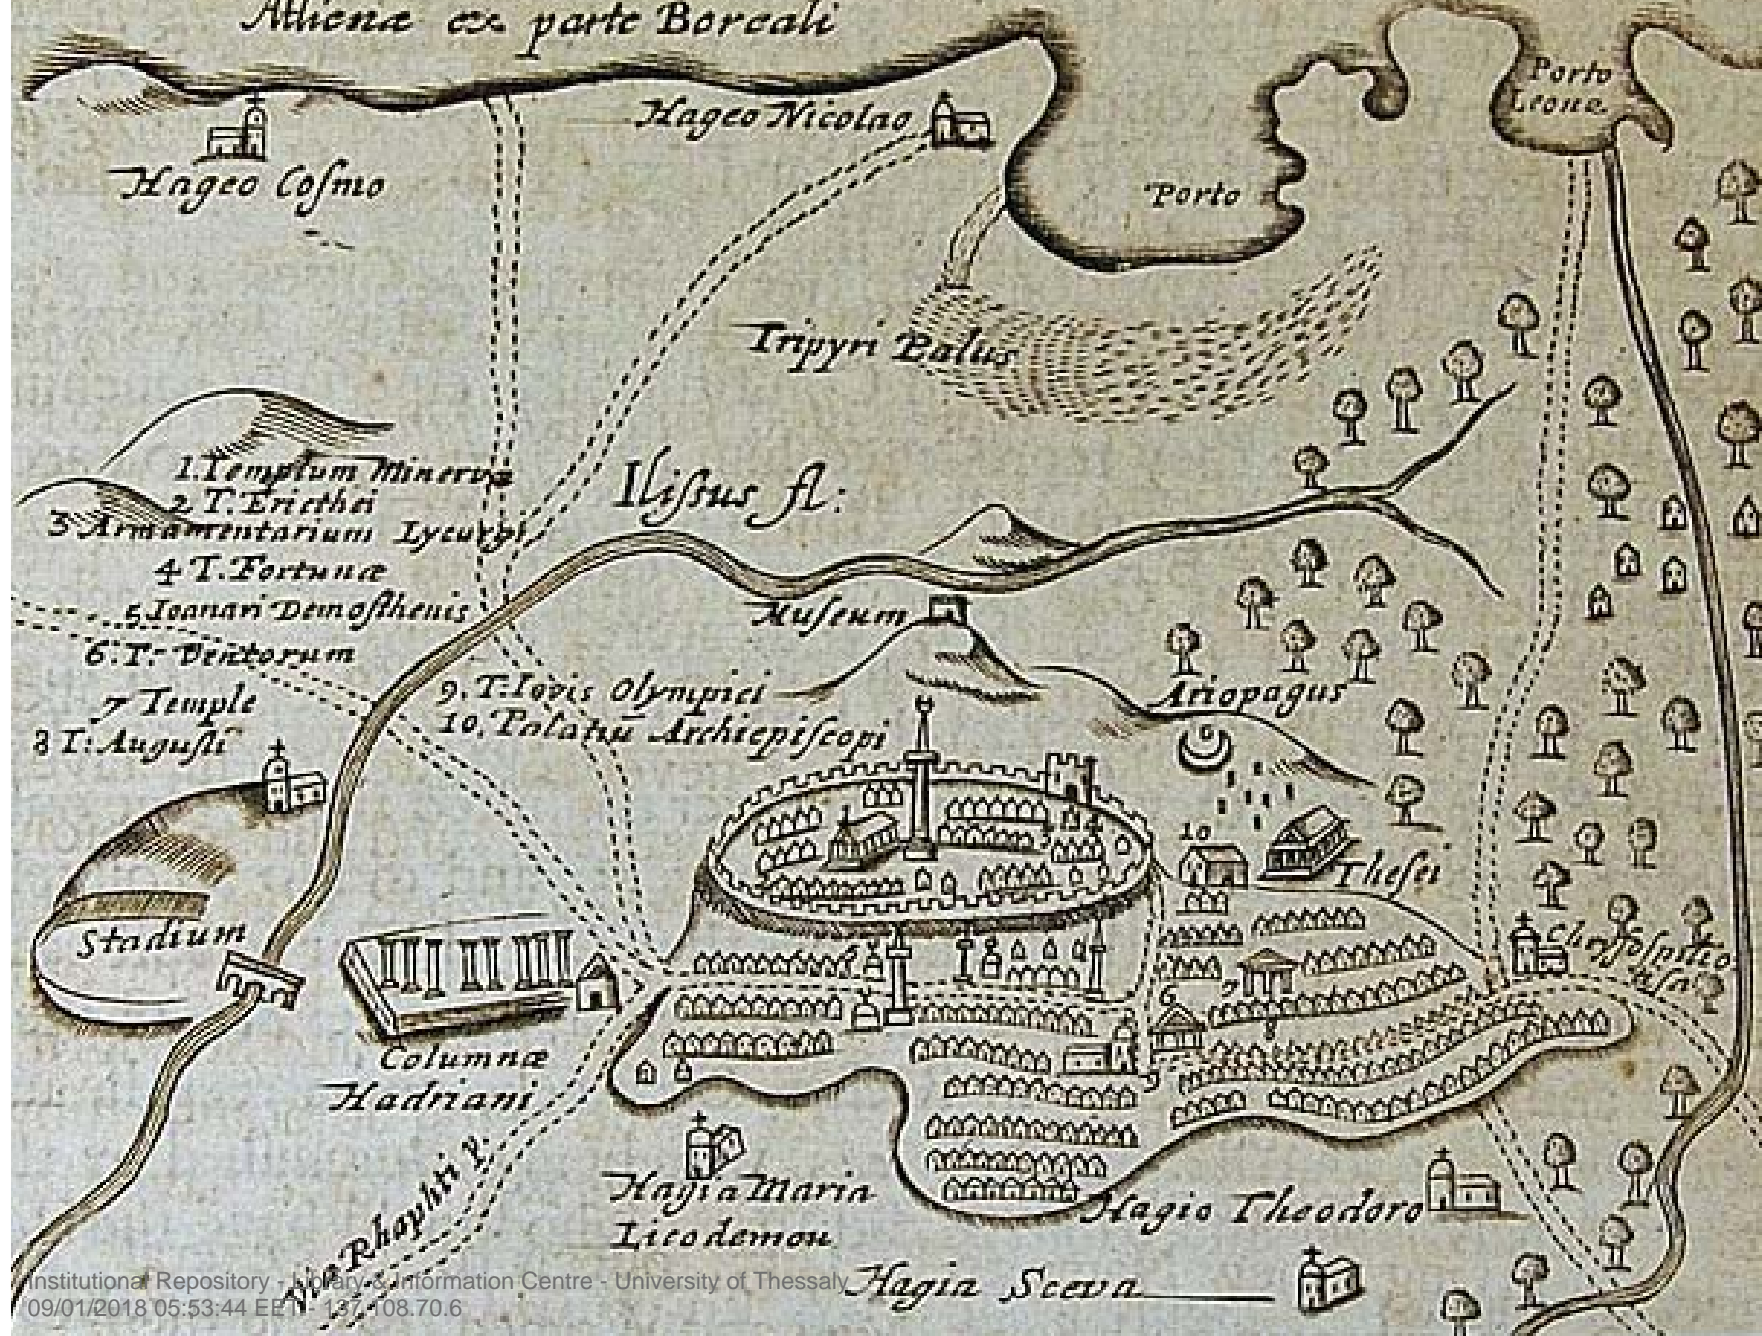 Athenæ ex parte Boreali
Porto
Leone
Hageo Nicolao
Hageo Cosmo
Porto
Tripyri Palus
1. Templum Minervæ
2 T. Ericthei
3 Armamentarium Lycurgi
4 T. Fortunæ
5. Ioanari Demosthenis
6. T. Ventorum
7 Temple
8 T: Augusti
9. T. Iovis Olympici
10. Palatiū Archiepiscopi
Ilissus fl:
Museum
Ariopagus
10
Thesei
Stadium
6
7
8
9
Columnæ
Hadriani
Via Rhaphti p.
Hagia Maria
Licodemou
Hagio Theodoro
Hagia Sceva
Institutional Repository - Library & Information Centre - University of Thessaly
09/01/2018 05:53:44 EET - 137.108.70.6